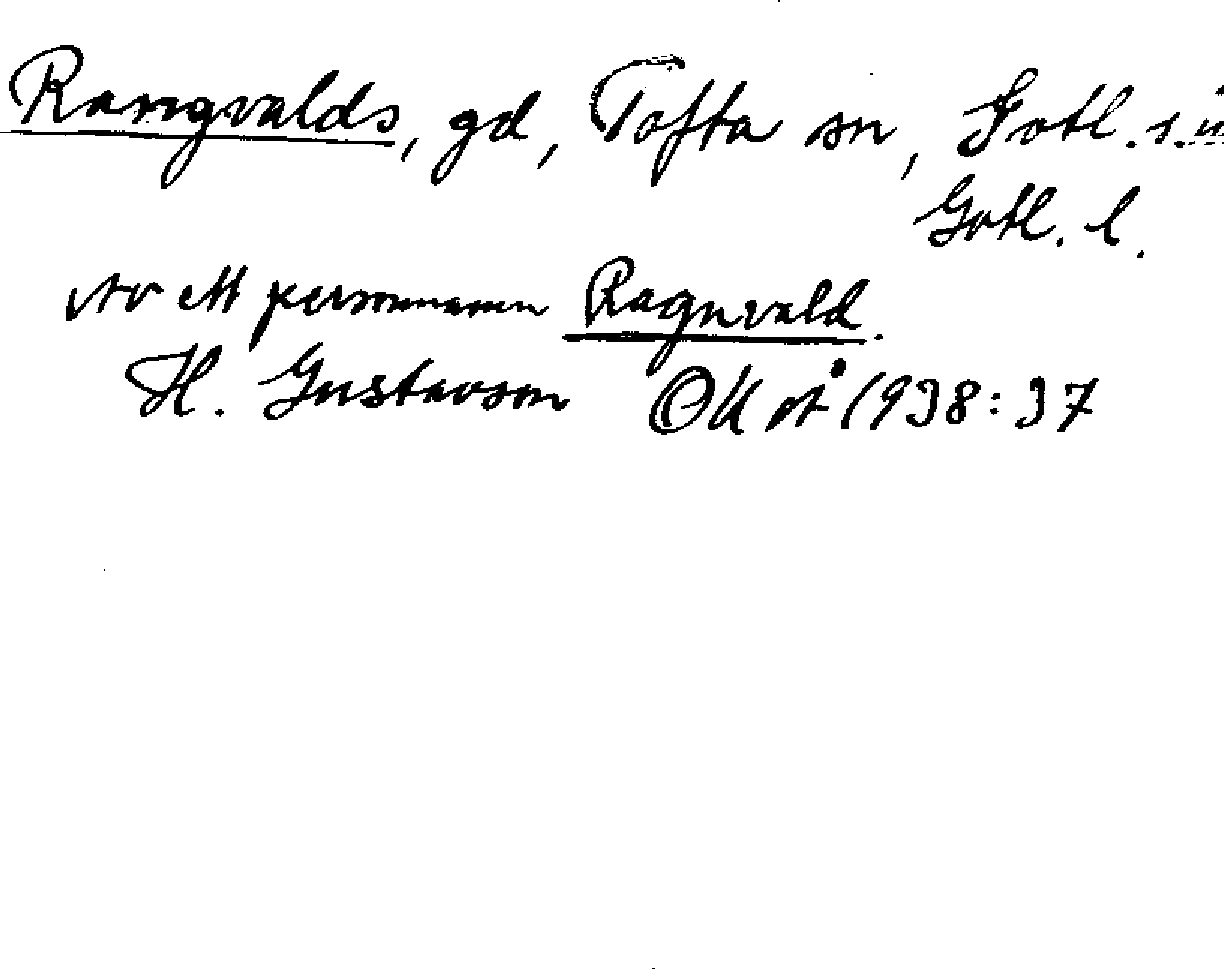 Rangvalds, gd, Tofta sn, Gotl. s.
Gotl. l.
Av ett personnamn Ragnvald.
H. Gustavson OK på 1938:37